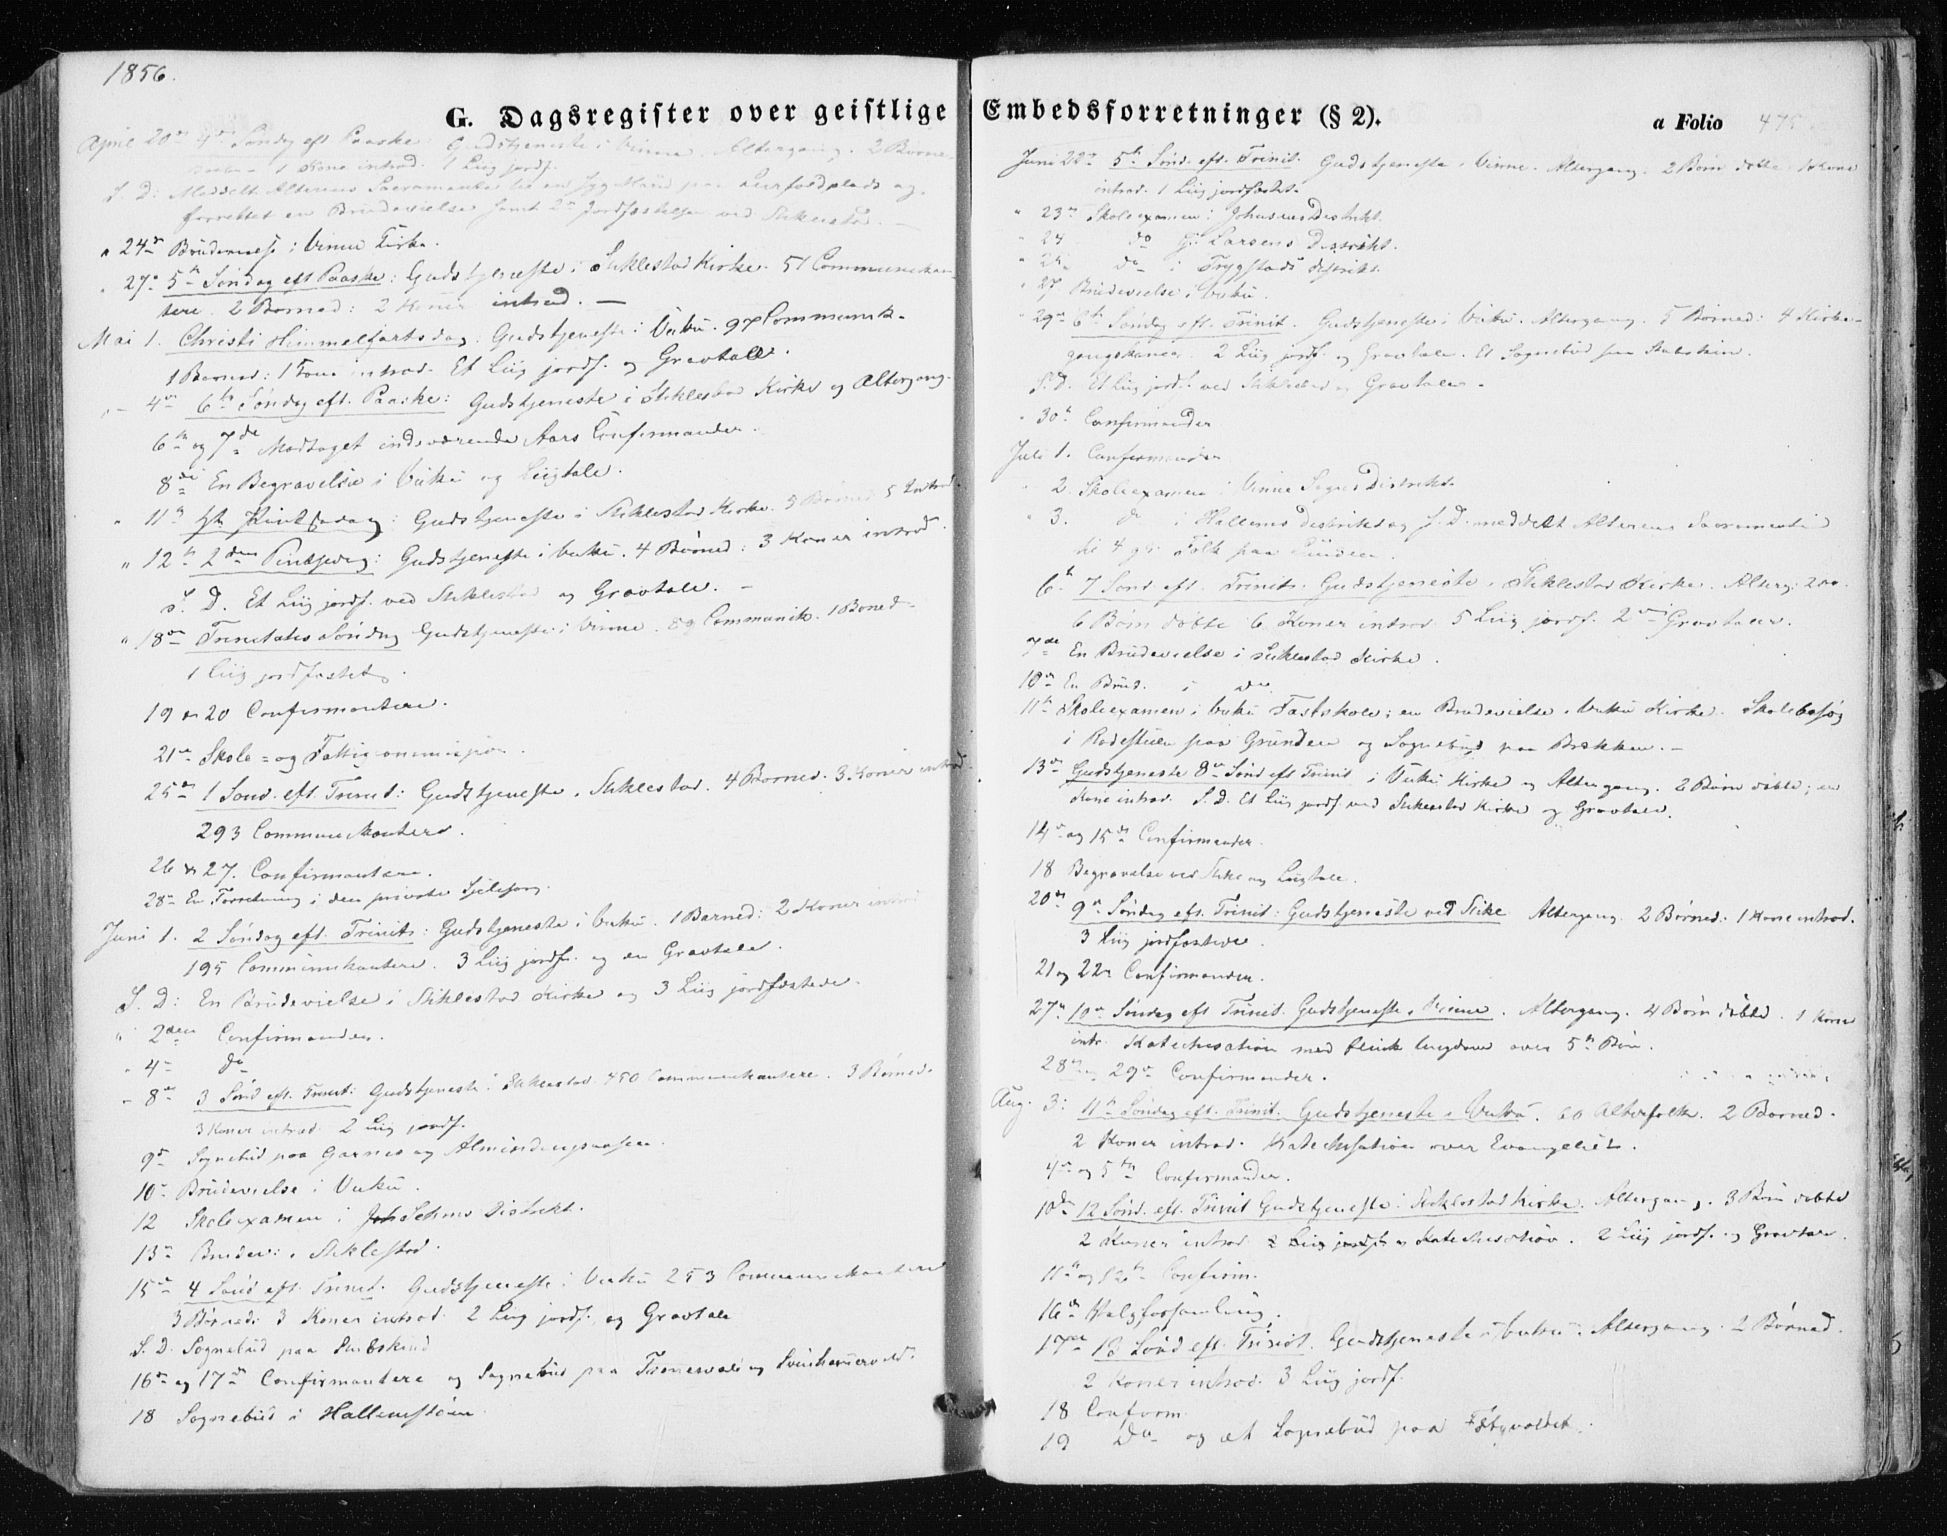 1856.
G. Dagsregister over geistlige
April 20de 4de Søndag eft Paaske: Gudstjeneste i Vinne. Altergang. 2 Børne-
1 Kone introd. 1 Liig jordf.
S. D: Meddelt Alterens Sacramente til en syg Mand paa og
forrettet en Brudevielse samt 2de Jordfæstelser ved Stiklestad. —
" 24de Brudevielse i Vinne Kirke.
" 27de 5te Søndag eft Paaske: Gudstjeneste i Stiklestad Kirke. 51 Communikan-
tere. 2 Børned: 2 Koner introd. —
Mai 1. Christi Himmelfartsdag: Gudstjeneste i Vuku. 97 Communik-
1 Barned: 1 Kone introd. Et Liig jordf. og Gravtale.
" 4de 6te Søndag eft. Paaske: Gudstjeneste i Stiklestad Kirke og Altergang.
6te og 7de Modtaget indeværende Aars Confirmander.
8de En Begravelse i Vuku og Liigtale.
" 11te Pintsedag: Gudstjeneste i Stiklestad Kirke. 5 Børned 5 Introd.
" 12te 2den Pintsedag: Gudstjeneste i Vuku. 4 Børned: 3 Koner introd.
S. D. Et Liig jordf. ved Stiklestad og Gravtale. —
" 18de Trinitatis Søndag Gudstjeneste i Vinne. 89 Communik. 1 Barned-
1 Liig jordfæstet.
19 og 20 Confirmantere.
21de Skole- og Fattigcommission.
25de 1 Sønd. eft. Trinit: Gudstjeneste i Stiklestad. 4 Børned. 3 Koner introd.
293 Communikantere.
26 & 27. Confirmantere.
28de En Forretning i den private Sjelesorg.
Juni 1. 2 Søndag eft. Trinit: Gudstjeneste i Vuku. 1 Barned: 2 Koner introd
195 Communikantere. 3 Liig jordf. og en Gravtale.
S. D: En Brudevielse i Stiklestad Kirke og 3 Liig jordfæstede.
" 2den Confirmander.
" 4de do
" 8de 3 Sønd eft. Trinit: Gudstjeneste i Stiklestad. 450 Communikantere. 3 Børned.
3 Koner introd. 2 Liig jordf.
9de Sognebud paa Garnes og Almindingsaasen.
10de Brudevielse i Vuku.
12 Skoleexamen i Distrikt.
13de Brudev: i Stiklestad.
15de 4 Sønd eft. Trinit. Gudstjeneste i Vuku 253 Communikantere
3 Børned: 3 Koner introd: 2 Liig jordf. og Gravtale
S. D. Sognebud paa
16de og 17de Confirmantere og Sognebud paa og
18 Sognebud i Hallemstuen.
Embedsforretninger (§ 2).
a Folio 475
Juni 22de 5te Sønd. eft. Trinit: Gudstjeneste i Vinne. Altergang. 2 Børn døbte. 1 Kone
introd. 1 Liig jordfæstet.
" 23de Skoleexamen i Johnsens Distrikt.
" 24 do G: Larsens Distrikt.
" do i Trygstads Distrikt.
" 27 Brudevielse i Vuku.
" 29de 6te Søndag eft. Trinit. Gudstjeneste i Vuku. Altergang. 5 Børned: 4 Kirke-
gangskoner. 2 Liig jordf. og Gravtale. Et Sognebud paa
S. D. Et Liig jordf. ved Stiklestad og Gravtale.
" 30te Confirmander
Juli 1. Confirmander
" 2. Skoleexamen i Vinne Sogns Distrikt.
" 3. do i Hallems Distrikt og S. D. meddelt Alterens Sacramente
til 4 gl. Folk paa
6te 7 Sønd. eft. Trinit. Gudstjeneste i Stiklestad Kirke. Alterg: 200.
6 Børn døbte 6 Koner introd. 5 Liig jordf. 2de Gravtaler.
7de En Brudevielse i Stiklestad Kirke.
10de En Brud. i do
11te Skoleexamen i Vuku Fastskole; en Brudevielse i Vuku Kirke. Skolebesøg
i Rodestuen paa Grunden og Sognebud paa Brækken. —
13de Gudstjeneste 8de Sønd eft Trinit i Vuku Kirke og Altergang. 2 Børn døbte; en
Kone introd. S. D. Et Liig jordf ved Stiklestad Kirke og Gravtale.
14de og 15de Confirmander.
18 Begravelse ved Stikl. og Liigtale.
20de 9de Søndag eft. Trinit: Gudstjeneste ved Stikl. Altergang. 2 Børned: 1 Kone introd.
3 Liig jordfæstede.
21 og 22de Confirmander.
27de 10de Søndag eft Trinit. Gudstjeneste i Vinne. Altergang. 4 Børn døbte. 1 Kone
intr. Katechisation med Ungdom over 5te Bøn.
28de og 29de Confirmander.
Aug. 3: 11te Søndag eft. Trinit. Gudstjeneste i Vuku. 60 Alterfolk. 2 Børned.
2 Koner introd. Katechisation over Evangeliet.
4de og 5te Confirmander.
10de 12 Sønd. eft. Trinit Gudstjeneste i Stiklestad Kirke. Altergang. 3 Børn døbte
2 Koner introd. 2 Liig jordf. og Katechisation. 2 Liig jordf. og Gravtale.
11te og 12te Confirm.
16de Valgforsamling.
17de 13 Sønd eft. Trinit. Gudstjeneste i Vuku. Altergang. 2 Børned.
2 Koner introd. 3 Liig jordf.
18 Confirm.
19 Do og et Sognebud paa